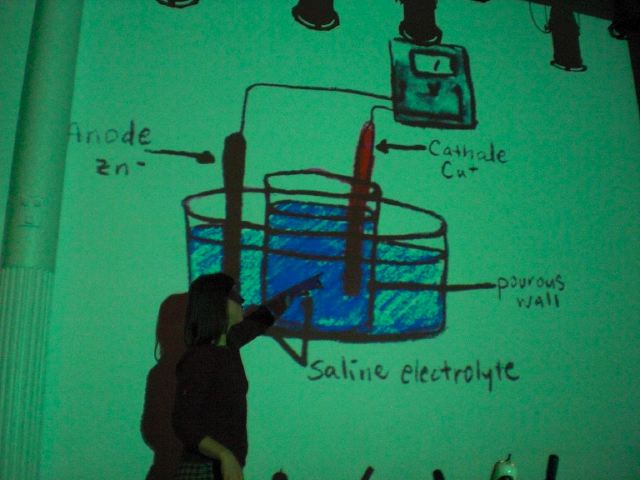 Anode
Zn-
Cathale
Cu+
pourous
wall
Saline electrolyte